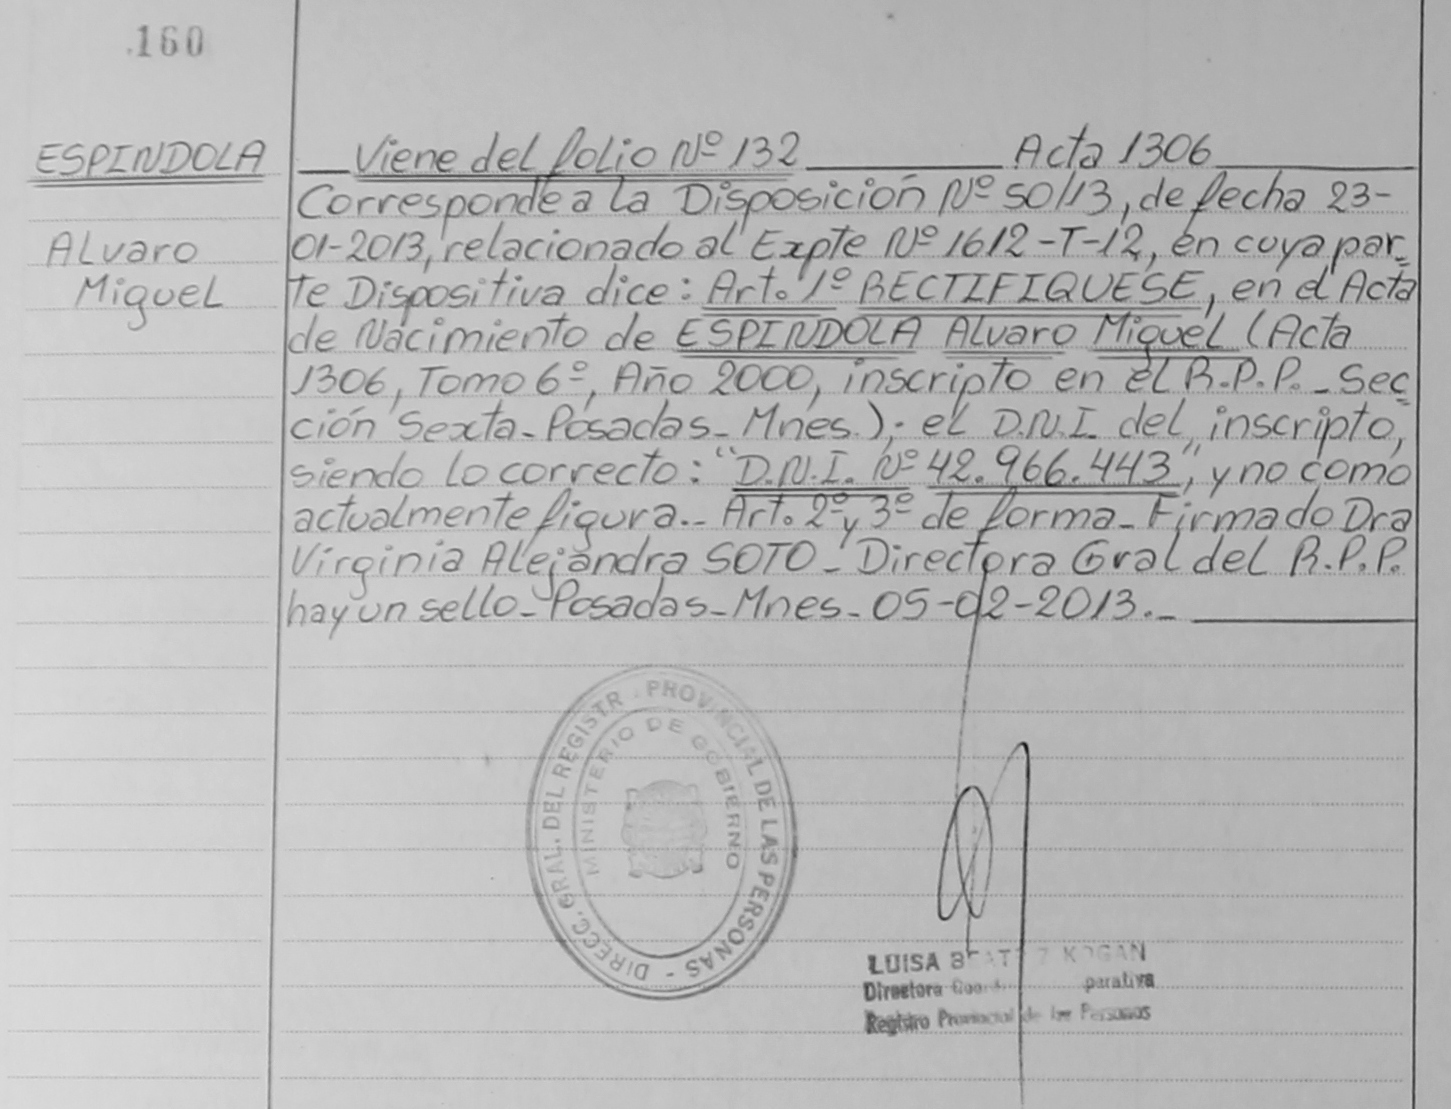 .160
ESPINDOLA
Alvaro
Miguel
Viene del folio Nº 132 Acta 1306
Corresponde a la Disposición Nº 50/13, de fecha 23-
01-2013, relacionado al Expte Nº 1612-T-12, en cuya par=
te Dispositiva dice: Art. 1º RECTIFIQUESE, en el Acta
de Nacimiento de ESPINDOLA Alvaro Miguel (Acta
1306, Tomo 6º, Año 2000, inscripto en el R.P.P. - Sec=
ción Sexta - Posadas - Mnes.); el D.N.I. del inscripto,
siendo lo correcto: "D.N.I. Nº 42.966.443", y no como
actualmente figura.- Art. 2º y 3º de forma - Firmado Dra
Virginia Alejandra SOTO - Directora Gral del R.P.P.
hay un sello - Posadas - Mnes - 05-02-2013.-
DIRECC. GRAL. DEL REGISTR. PROVINCIAL DE LAS PERSONAS -
MINISTERIO DE GOBIERNO
LUISA KOGAN
Directora
Registro Provincial de las Personas